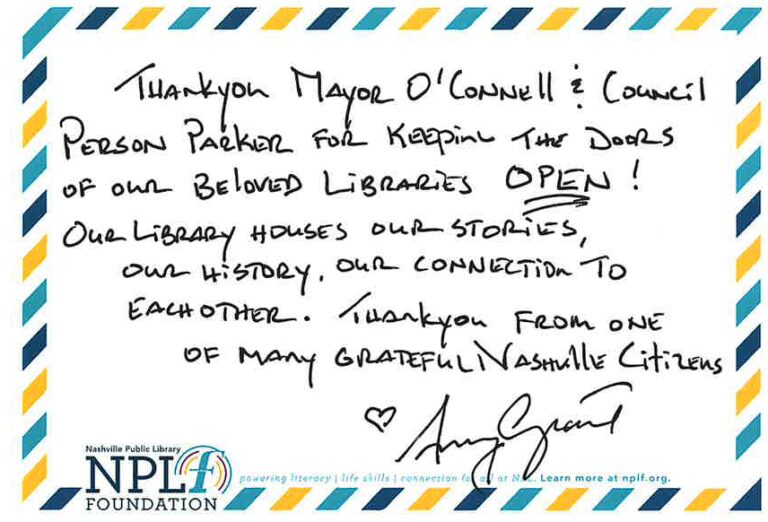 Thankyou Mayor O'Connell & Council
Person Parker for Keeping the Doors
of our Beloved Libraries OPEN!
Our Library houses our stories,
our history, our connection to
eachother. Thankyou from one
of many grateful Nashville Citizens
♡ Amy Grant
Nashville Public Library
NPLf
FOUNDATION
powering literacy | life skills | connection for all at NPL. Learn more at nplf.org.